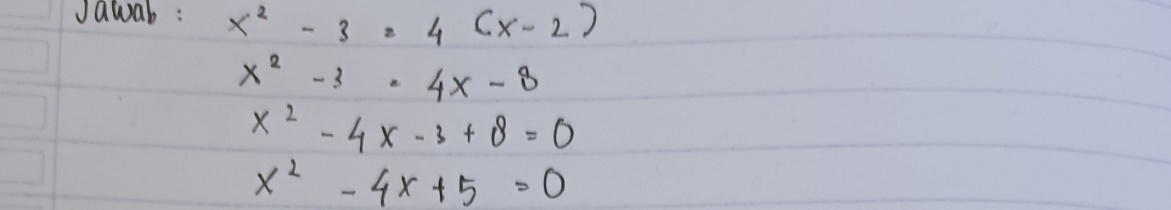 Jawab : x² - 3 = 4 (x - 2)
x² - 3 = 4x - 8
x² - 4x - 3 + 8 = 0
x² - 4x + 5 = 0